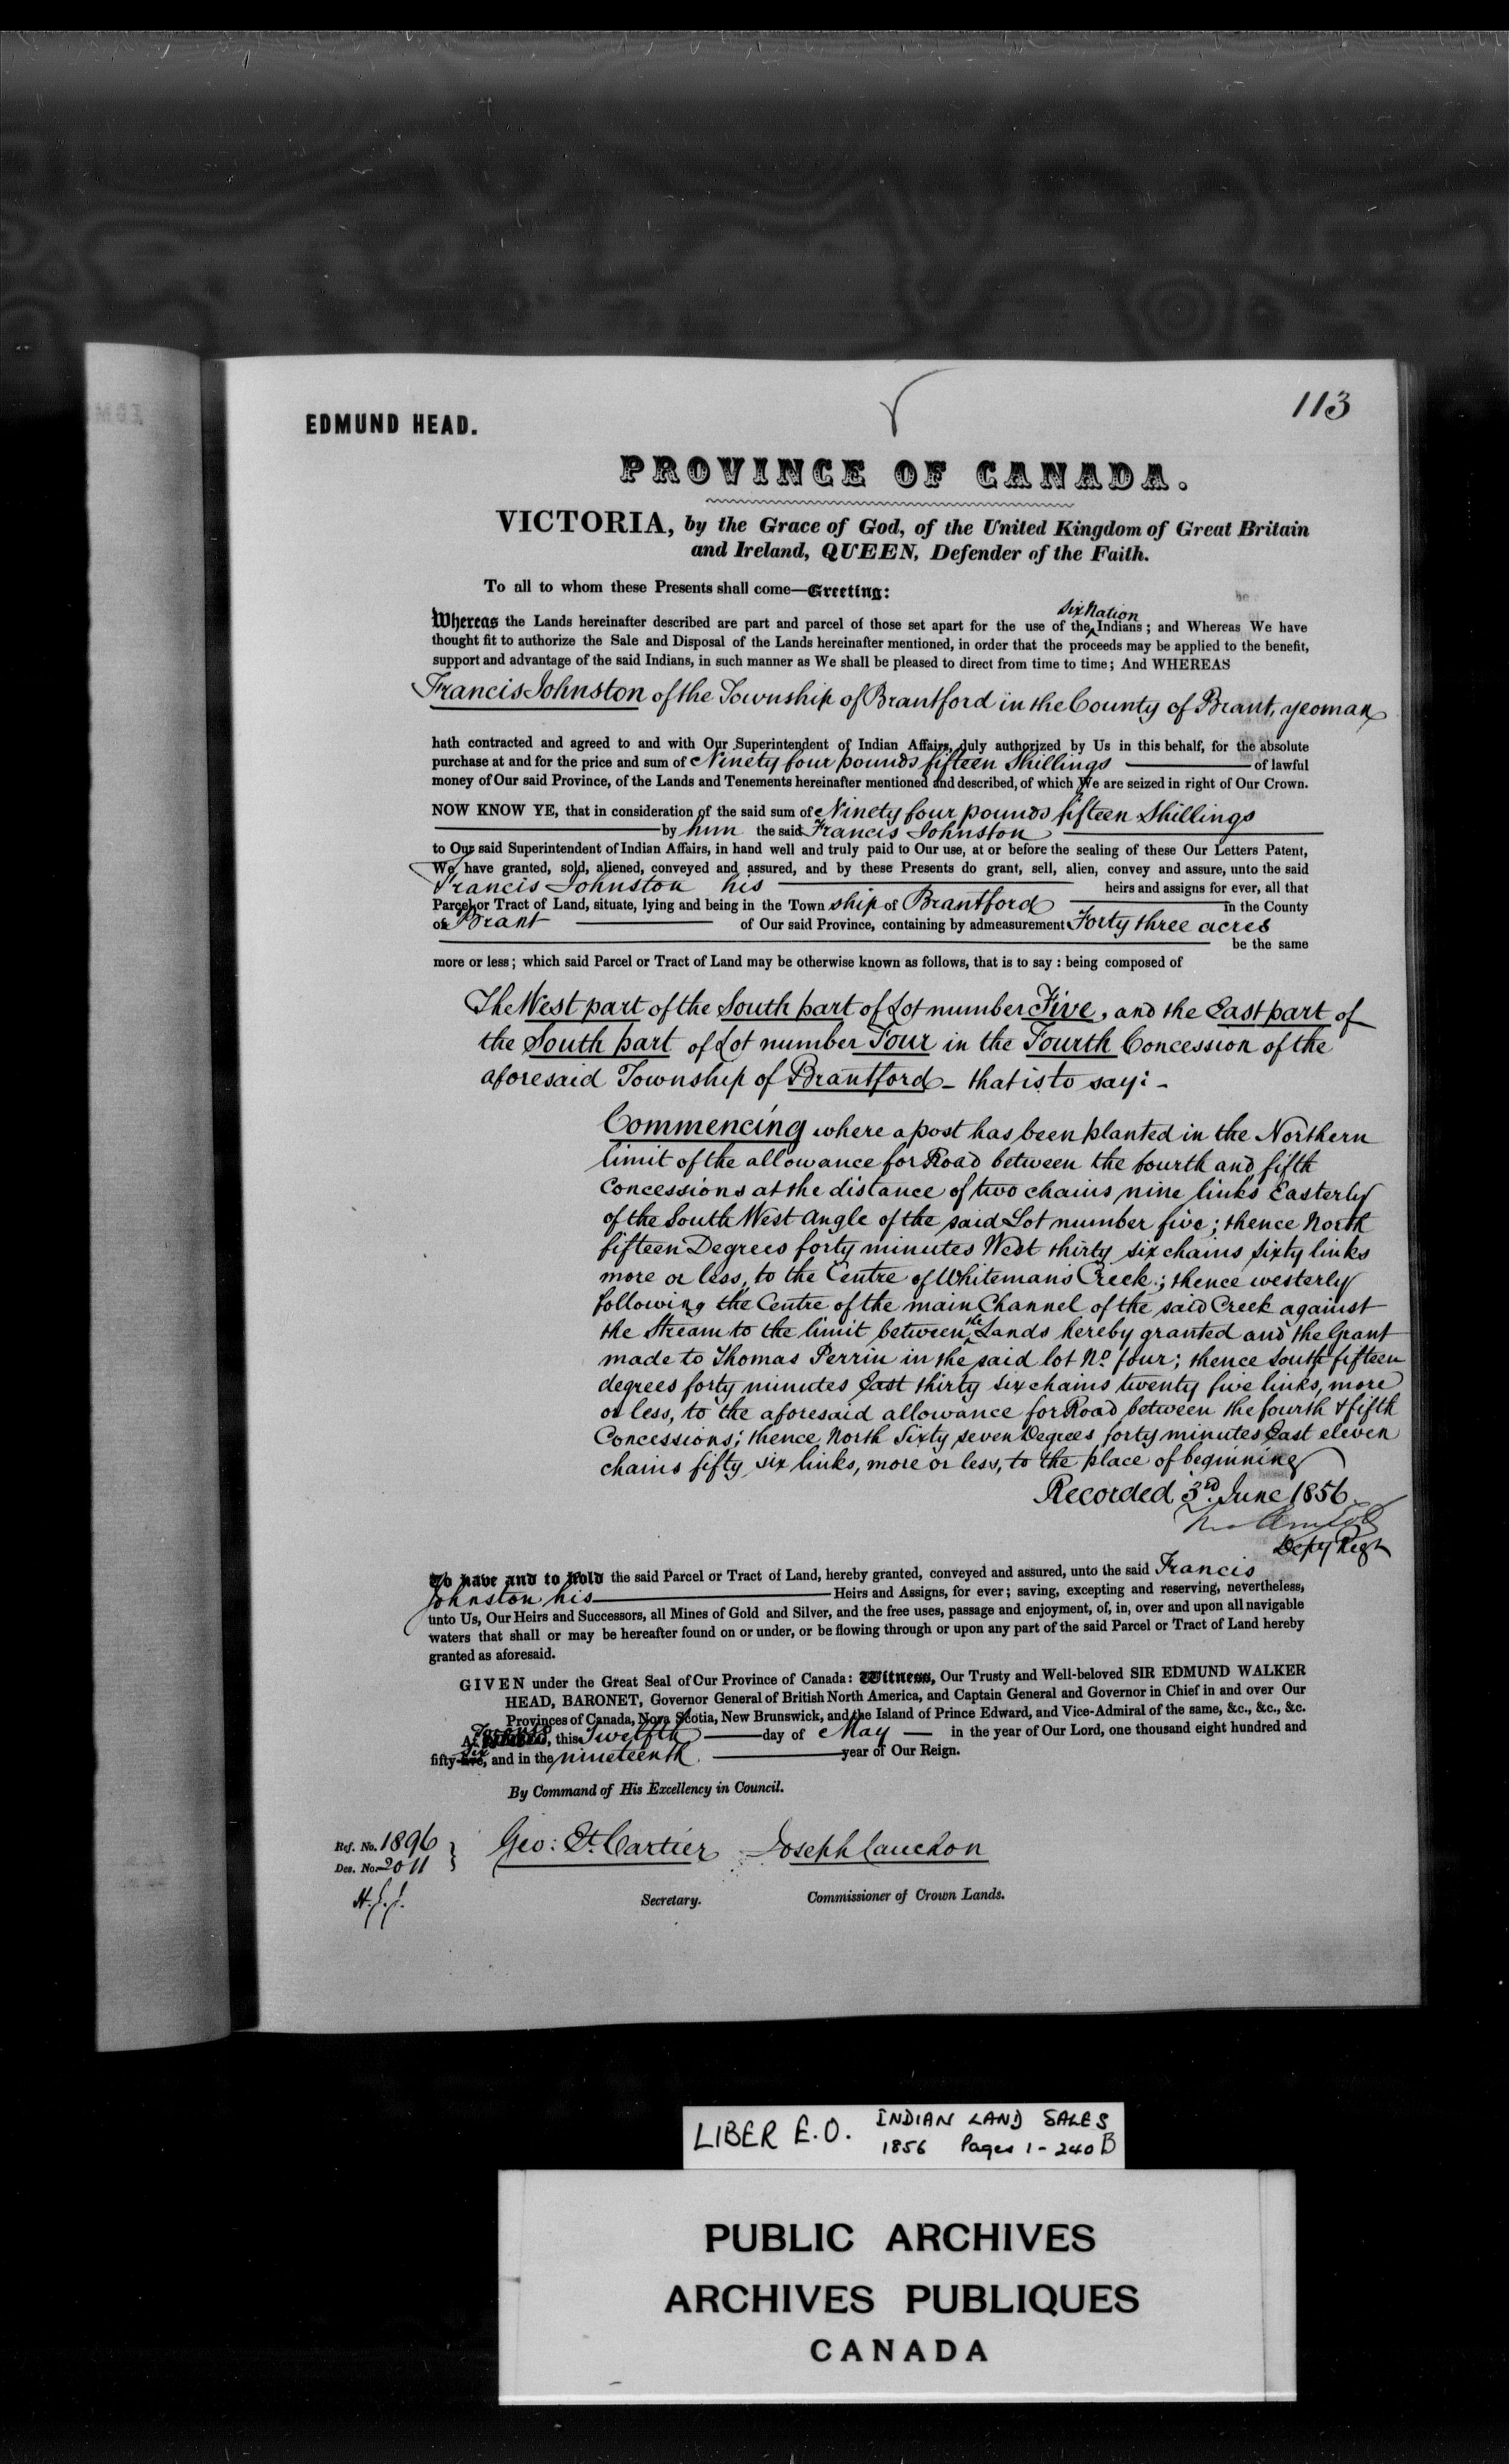 113
EDMUND HEAD.
PROVINCE OF CANADA.
VICTORIA, by the Grace of God, of the United Kingdom of Great Britain
and Ireland, QUEEN, Defender of the Faith.
To all to whom these Presents shall come—Greeting:
Six Nation
Whereas the Lands hereinafter described are part and parcel of those set apart for the use of the Indians; and Whereas We have
thought fit to authorize the Sale and Disposal of the Lands hereinafter mentioned, in order that the proceeds may be applied to the benefit,
support and advantage of the said Indians, in such manner as We shall be pleased to direct from time to time; And WHEREAS
Francis Johnston of the Township of Brantford in the County of Brant, yeoman
hath contracted and agreed to and with Our Superintendent of Indian Affairs, duly authorized by Us in this behalf, for the absolute
purchase at and for the price and sum of Ninety four pounds fifteen Shillings of lawful
money of Our said Province, of the Lands and Tenements hereinafter mentioned and described, of which We are seized in right of Our Crown.
NOW KNOW YE, that in consideration of the said sum of Ninety four pounds fifteen Shillings
by him the said Francis Johnston
to Our said Superintendent of Indian Affairs, in hand well and truly paid to Our use, at or before the sealing of these Our Letters Patent,
We have granted, sold, aliened, conveyed and assured, and by these Presents do grant, sell, alien, convey and assure, unto the said
Francis Johnston his heirs and assigns for ever, all that
Parcel or Tract of Land, situate, lying and being in the Town ship of Brantford in the County
of Brant of Our said Province, containing by admeasurement Forty three acres
be the same
more or less; which said Parcel or Tract of Land may be otherwise known as follows, that is to say: being composed of
The West part of the South part of Lot number Five, and the East part of
the South part of Lot number Four in the Fourth Concession of the
aforesaid Township of Brantford – that is to say: –
Commencing where a post has been planted in the Northern
limit of the allowance for Road between the fourth and fifth
Concessions at the distance of two chains nine links Easterly
of the South West Angle of the said Lot number five; thence North
fifteen Degrees forty minutes West thirty six chains sixty links
more or less, to the Centre of Whitemans Creek; thence westerly
following the Centre of the main Channel of the said Creek against
the Stream to the limit between the Lands hereby granted and the Grant
made to Thomas Perrin in the said lot No. four; thence South fifteen
degrees forty minutes East thirty six chains twenty five links, more
or less, to the aforesaid allowance for Road between the fourth & fifth
Concessions; thence North Sixty seven Degrees forty minutes East eleven
chains fifty six links, more or less, to the place of beginning
Recorded 3rd. June 1856
Depy Regr
To have and to hold the said Parcel or Tract of Land, hereby granted, conveyed and assured, unto the said Francis
Johnston his Heirs and Assigns, for ever; saving, excepting and reserving, nevertheless,
unto Us, Our Heirs and Successors, all Mines of Gold and Silver, and the free uses, passage and enjoyment, of, in, over and upon all navigable
waters that shall or may be hereafter found on or under, or be flowing through or upon any part of the said Parcel or Tract of Land hereby
granted as aforesaid.
GIVEN under the Great Seal of Our Province of Canada: Witness, Our Trusty and Well-beloved SIR EDMUND WALKER
HEAD, BARONET, Governor General of British North America, and Captain General and Governor in Chief in and over Our
Provinces of Canada, Nova Scotia, New Brunswick, and the Island of Prince Edward, and Vice-Admiral of the same, &c., &c., &c.
At Toronto, this Twelfth day of May in the year of Our Lord, one thousand eight hundred and
fifty-five, six and in the nineteenth year of Our Reign.
By Command of His Excellency in Council.
Ref. No. 1896
Des. No. 2011
Geo: Et. Cartier Joseph Cauchon
Secretary. Commissioner of Crown Lands.
LIBER E.O. INDIAN LAND SALES
1856 Pages 1-240B
PUBLIC ARCHIVES
ARCHIVES PUBLIQUES
CANADA